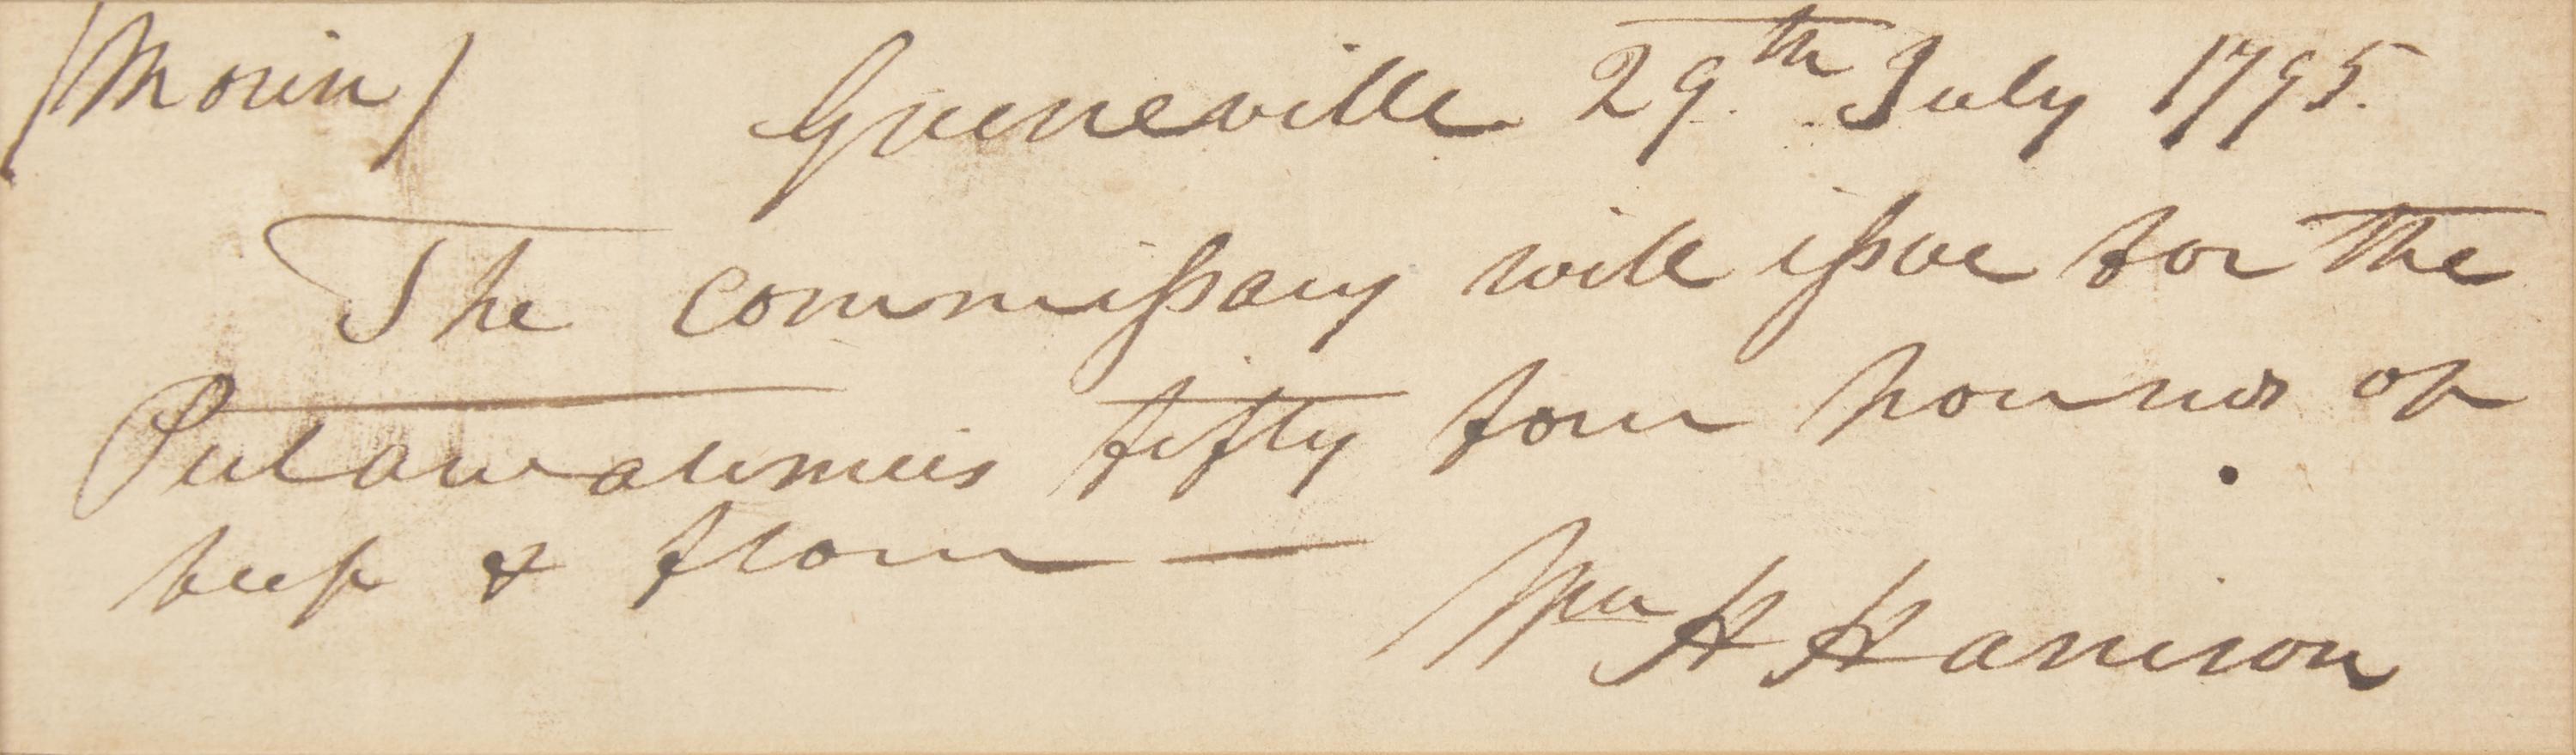 /Morin/ Greeneville 29th July 1795.
The commissary will issue for the
Putawatimies fifty four pounds of
beef & flour —
Wm H Harrison